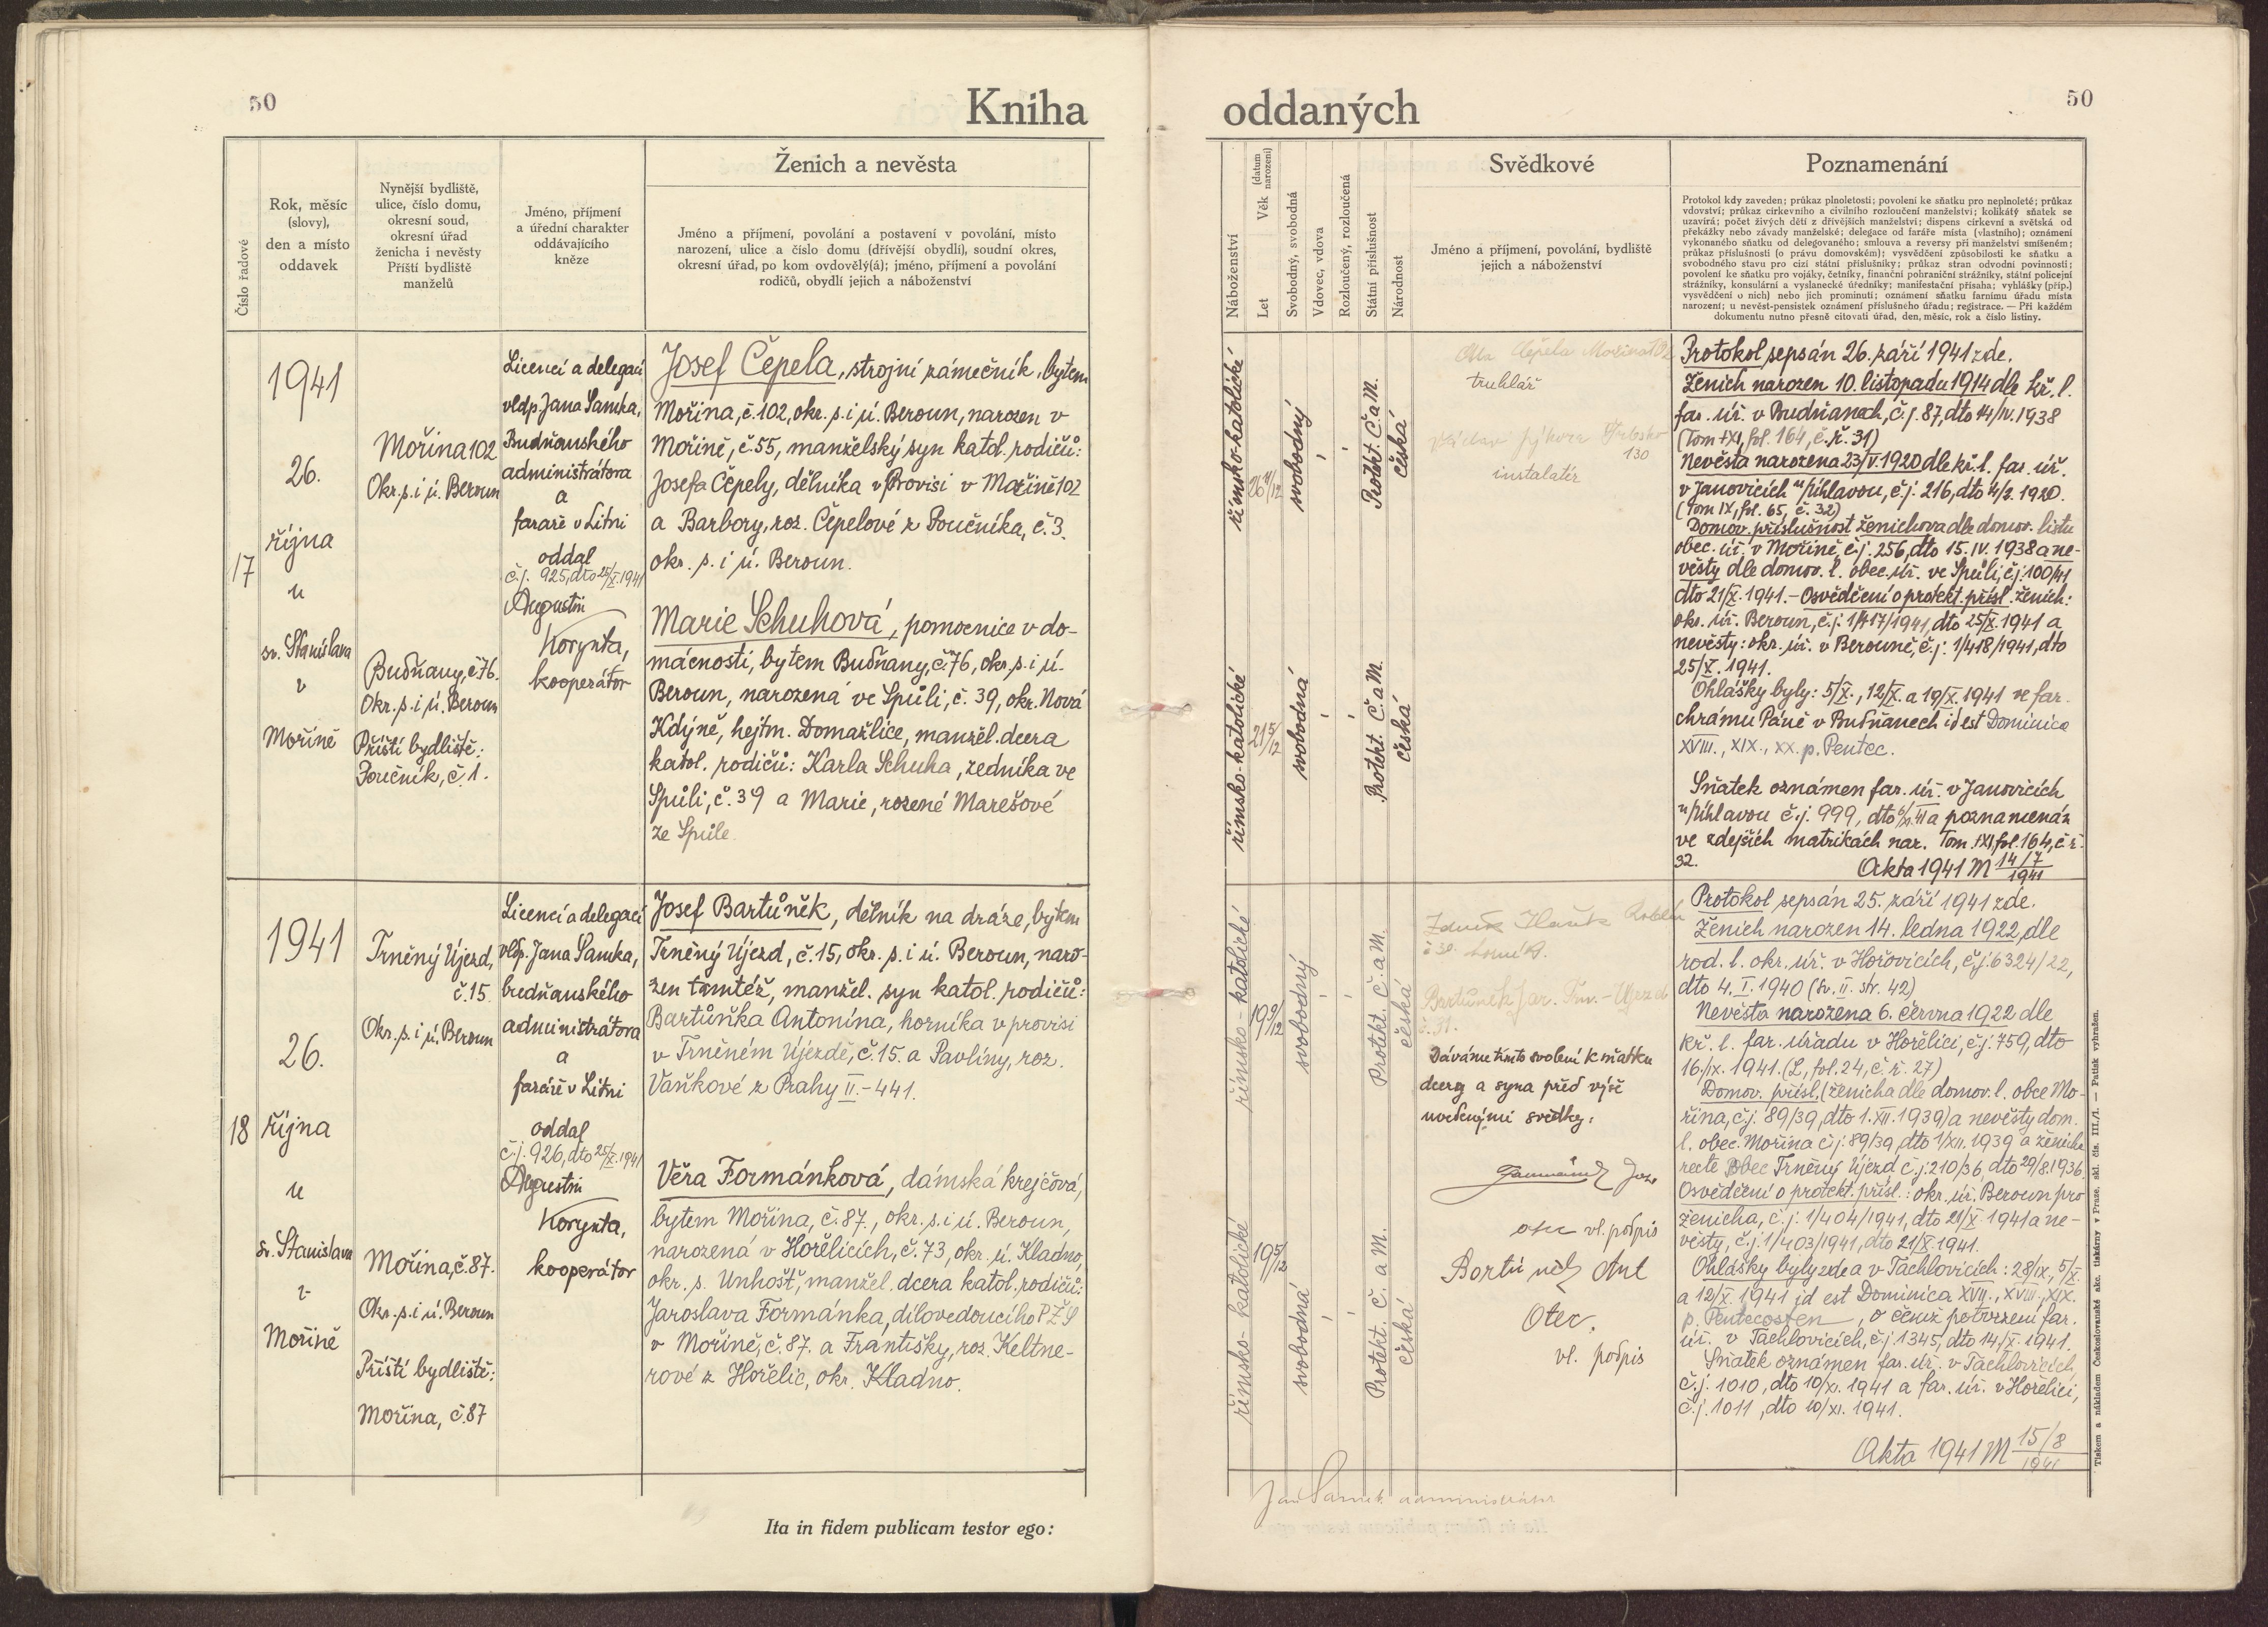 50
Kniha
Číslo řadové
Rok, měsíc
(slovy),
den a místo
oddavek
Nynější bydliště,
ulice, číslo domu,
okresní soud,
okresní úřad
ženicha i nevěsty
Příští bydliště
manželů
Jméno, příjmení
a úřední charakter
oddávajícího
kněze
Ženich a nevěsta
Jméno a příjmení, povolání a postavení v povolání, místo
narození, ulice a číslo domu (dřívější obydlí), soudní okres,
okresní úřad, po kom ovdovělý(á); jméno, příjmení a povolání
rodičů, obydlí jejich a náboženství
17
1941
26.
října
u
sv. Stanislava
v
Mořině
Mořina 102
Okr. s. i ú. Beroun
Budňany, č. 76.
Okr. s. i ú. Beroun
Příští bydliště:
Poučník, č. 1.
Licencí a delegací
vldp. Jana Samka,
Budňanského
administrátora
a
faráře v Litni
oddal
č.j. 925, dto 25/X. 1941
Augustin
Korynta,
kooperátor
Josef Čepela, strojní zámečník, bytem
Mořina, č. 102, okr. s. i ú. Beroun, narozen v
Mořině, č. 55, manželský syn katol. rodičů:
Josefa Čepely, dělníka v provisi v Mořině 102
a Barbory, roz. Čepelové z Poučníka, č. 3.
okr. s. i ú. Beroun.
Marie Schuhová, pomocnice v do-
mácnosti, bytem Budňany, č. 76, okr. s. i ú.
Beroun, narozená ve Spůli, č. 39, okr. Nová
Kdýně, hejtm. Domažlice, manžel. dcera
katol. rodičů: Karla Schuha, zedníka ve
Spůli, č. 39 a Marie, rozené Marešové
ze Spůle.
18
1941
26.
října
u
sv. Stanislava
v
Mořině
Trněný Újezd,
č. 15.
Okr. s. i ú. Beroun
Mořina, č. 87.
Okr. s. i ú. Beroun
Příští bydliště:
Mořina, č. 87
Licencí a delegací
vldp. Jana Samka,
budňanského
administrátora
a
faráře v Litni
oddal
č.j. 926, dto 25/X. 1941
Augustin
Korynta,
kooperátor
Josef Bartůněk, dělník na dráze, bytem
Trněný Újezd, č. 15, okr. s. i ú. Beroun, naro-
zen tamtéž, manžel. syn katol. rodičů:
Bartůňka Antonína, horníka v provisi
v Trněném Újezdě, č. 15. a Pavlíny, roz.
Vaňkové z Prahy II. - 441.
Věra Formánková, dámská krejčová,
bytem Mořina, č. 87., okr. s. i ú. Beroun,
narozená v Hořelicích, č. 73, okr. ú. Kladno,
okr. s. Unhošť, manžel. dcera katol. rodičů:
Jaroslava Formánka, dílovedoucího PŽS
v Mořině, č. 87. a Františky, roz. Keltne-
rové z Hořelic, okr. Kladno.
Ita in fidem publicam testor ego:
oddaných
50
Náboženství
Let
Věk
(datum narození)
Svobodný, svobodná
Vdovec, vdova
Rozloučený, rozloučená
Státní příslušnost
Národnost
Svědkové
Jméno a příjmení, povolání, bydliště
jejich a náboženství
Poznamenání
Protokol kdy zaveden; průkaz plnoletosti; povolení ke sňatku pro neplnoleté; průkaz
vdovství; průkaz církevního a civilního rozloučení manželství; kolikátý sňatek se
uzavírá; počet živých dětí z dřívějších manželství; dispens církevní a světská od
překážky nebo závady manželské; delegace od faráře místa (vlastního); oznámení
vykonaného sňatku od delegovaného; smlouva a reversy při manželství smíšeném;
průkaz příslušnosti (o právu domovském); vysvědčení způsobilosti ke sňatku a
svobodného stavu pro cizí státní příslušníky; průkaz stran odvodní povinnosti;
povolení ke sňatku pro vojáky, četníky, finanční pohraniční strážníky, státní policejní
strážníky, konsulární a vyslanecké úředníky; manifestační přísaha; vyhlášky (příp.)
vysvědčení o nich) nebo jich prominutí; oznámení sňatku farnímu úřadu místa
narození; u nevěst-pensistek oznámení příslušného úřadu; registrace. — Při každém
dokumentu nutno přesně citovati úřad, den, měsíc, rok a číslo listiny.
římsko-katolické
26 11/12
svobodný
Protekt. Č. a M.
česká
římsko-katolické
21 5/12
svobodná
Protekt. Č. a M.
česká
Čepela Mořina 102
truhlář
Srbsko
130
instalatér
Protokol sepsán 26. září 1941 zde.
Ženich narozen 10. listopadu 1914 dle kř. l.
far. úř. v Budňanech, č.j. 87, dto 14/IV. 1938
(Tom IXI, fol. 164, č. ř. 31)
Nevěsta narozena 23/V. 1920 dle kř. l. far. úř.
v Janovicích n/Úhlavou, č.j. 216, dto 4/2. 1920.
(Tom IX, fol. 65, č. 32)
Domov. příslušnost ženichova dle domov. listu
obec. úř. v Mořině, č.j. 256, dto 15. IV. 1938 a ne-
věsty dle domov. l. obec. úř. ve Spůli, č.j. 100/41
dto 21/X. 1941. – Osvědčení o protekt. přísl. ženich:
okr. úř. Beroun, č.j. 1/417/1941, dto 25/X. 1941 a
nevěsty: okr. úř. v Berouně, č.j. 1/418/1941, dto
25/X. 1941.
Ohlášky byly: 5/X., 12/X. a 19/X. 1941 ve far.
chrámu Páně v Budňanech id est Dominica
XVIII., XIX., XX. p. Pentec.
Sňatek oznámen far. úř. v Janovicích
n/Úhlavou č.j. 999, dto 6/XI. 41 a poznamenán
ve zdejších matrikách nar. Tom. IXI, fol. 164, č. ř.
32.
Akta 1941 M 14/7
1941
římsko-katolické
19 9/12
svobodný
Protekt. Č. a M.
česká
římsko-katolické
19 5/12
svobodná
Protekt. Č. a M.
česká
č 30. horník.
Bartůněk Jar. Trn. - Újezd
č. 31.
Dáváme tímto svolení k sňatku
dcery a syna před výše
uvedenými svědky:
otec vl. podpis
Bartůněk Ant
Otec.
vl. podpis
Protokol sepsán 25. září 1941 zde.
Ženich narozen 14. ledna 1922, dle
rod. l. okr. úř. v Hořovicích, č.j. 6324/22,
dto 4. I. 1940 (Sv. II. str. 42)
Nevěsta narozena 6. června 1922 dle
kř. l. far. úřadu v Hořelici, č.j. 759, dto
16./IX. 1941. (L, fol. 24, č. ř. 27)
Domov. přísl. (ženicha dle domov. l. obce Mo-
řina, č.j. 89/39, dto 1. XII. 1939) a nevěsty dom.
l. obec. Mořina č.j. 89/39, dto 1/XII. 1939 a ženicha
recte obec Trněný Újezd č.j. 210/36, dto 29/8. 1936.
Osvědčení o protekt. přísl.: okr. úř. Beroun pro
ženicha, č.j. 1/404/1941, dto 21/X. 1941 a ne-
věsty, č.j. 1/403/1941, dto 21/X. 1941.
Ohlášky byly zde a v Tachlovicích: 28/IX., 5/X.
a 12/X. 1941 id est Dominica XVII., XVIII., XIX.
p. Pentecosten, o čemž potvrzení far.
úř. v Tachlovicích, č.j. 1345, dto 14/X. 1941.
Sňatek oznámen far. úř. v Tachlovicích,
č.j. 1010, dto 10/XI. 1941 a far. úř. v Hořelici,
č.j. 1011, dto 10/XI. 1941.
Akta 1941 M 15/8
1941
Jan Samek administrátor
Tiskem a nákladem Československé akc. tiskárny v Praze, skl. čís. III./1. — Patisk vyhražen.